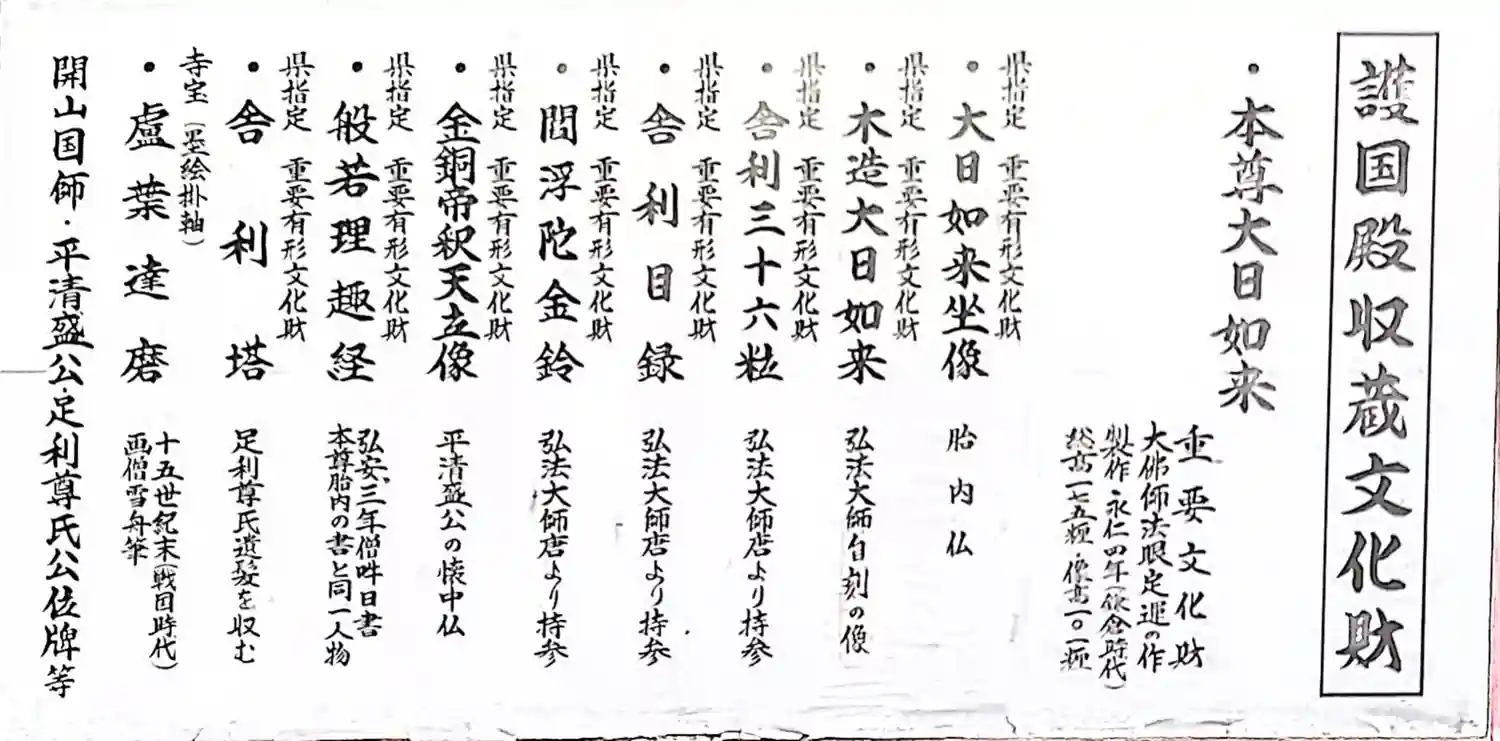 護国殿収蔵文化財
・本尊大日如来
重要文化財
大佛師法眼定運の作
製作 永仁四年(鎌倉時代)
総高一七五糎・像高一〇一糎
県指定 重要有形文化財
・大日如来坐像 胎内仏
県指定 重要有形文化財
・木造大日如来 弘法大師自刻の像
県指定 重要有形文化財
・舎利三十六粒 弘法大師唐より持参
県指定 重要有形文化財
・舎利目録 弘法大師唐より持参
県指定 重要有形文化財
・閻浮陀金鈴 弘法大師唐より持参
県指定 重要有形文化財
・金銅帝釈天立像 平清盛公の懐中仏
県指定 重要有形文化財
・般若理趣経 弘安三年僧吽日書
本尊胎内の書と同一人物
県指定 重要有形文化財
・舎利塔 足利尊氏遺髪を収む
寺宝(墨絵掛軸)
・盧葉達磨 十五世紀末(戦国時代)
画僧雪舟筆
開山国師・平清盛公・足利尊氏公位牌等